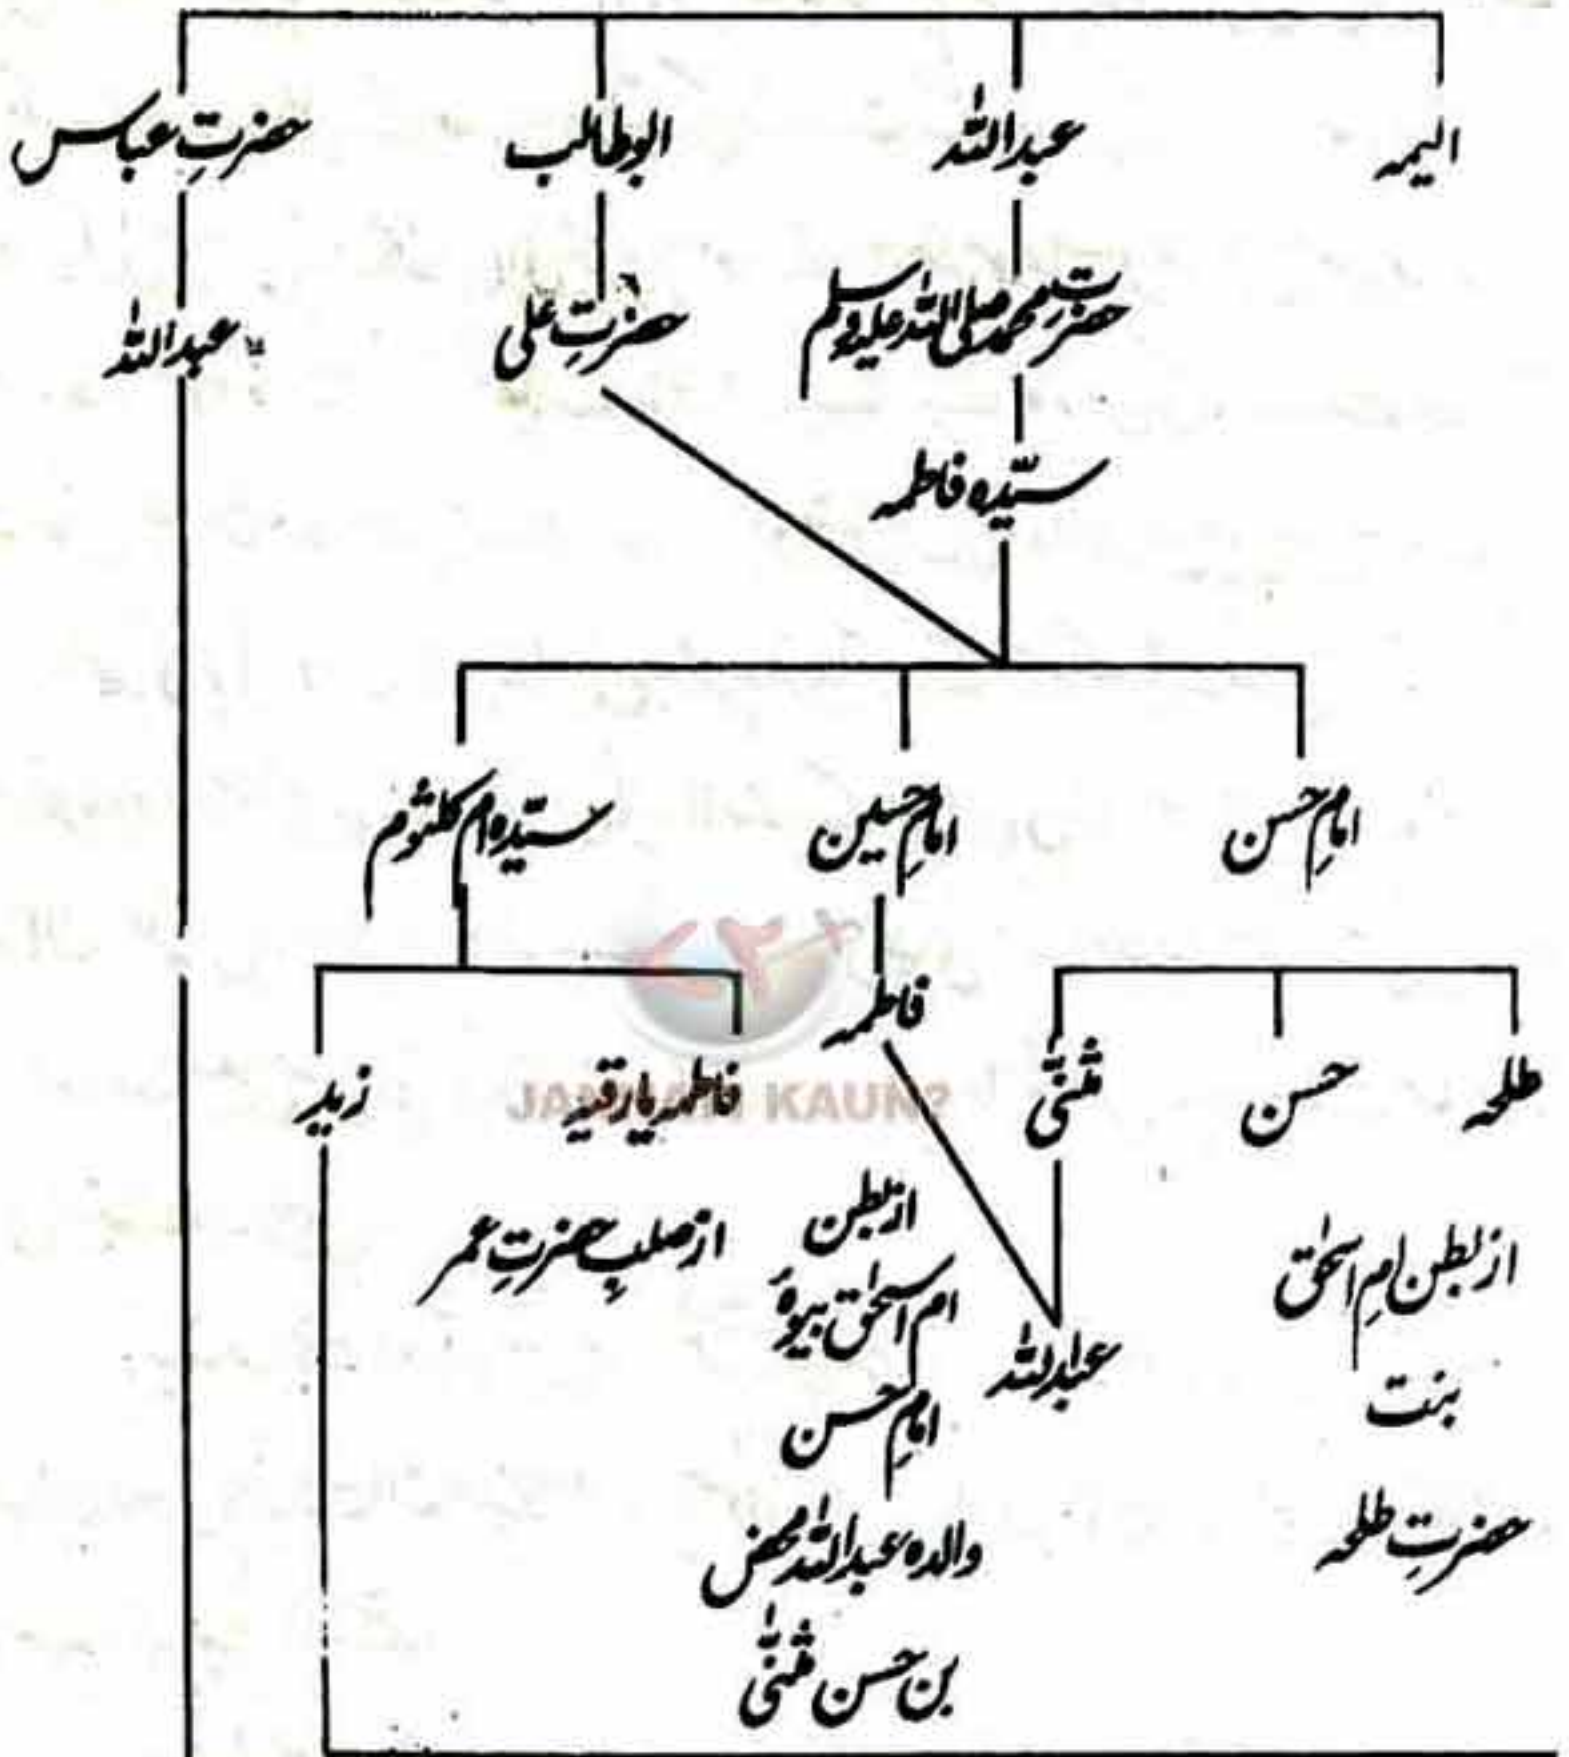 الیمہ عبداللہ ابوطالب حضرتِ عباس
حضرتِ محمد صلی اللہ علیہ وسلم حضرتِ علی عبداللہ
سیّدہ فاطمہ
امامِ حسن امامِ حسین سیّدہ ام کلثوم
فاطمہ
طلحہ حسن مثنّٰی فاطمہ یا رقیہ زید
JANNATI KAUN?
از بطن امِ اسحٰق
بنت
حضرتِ طلحہ
عبداللہ
از بطن
ام اسحٰق بیوۂ
امامِ حسن
والدہ عبداللہ محض
بن حسن مثنّٰی
از صلبِ حضرتِ عمر